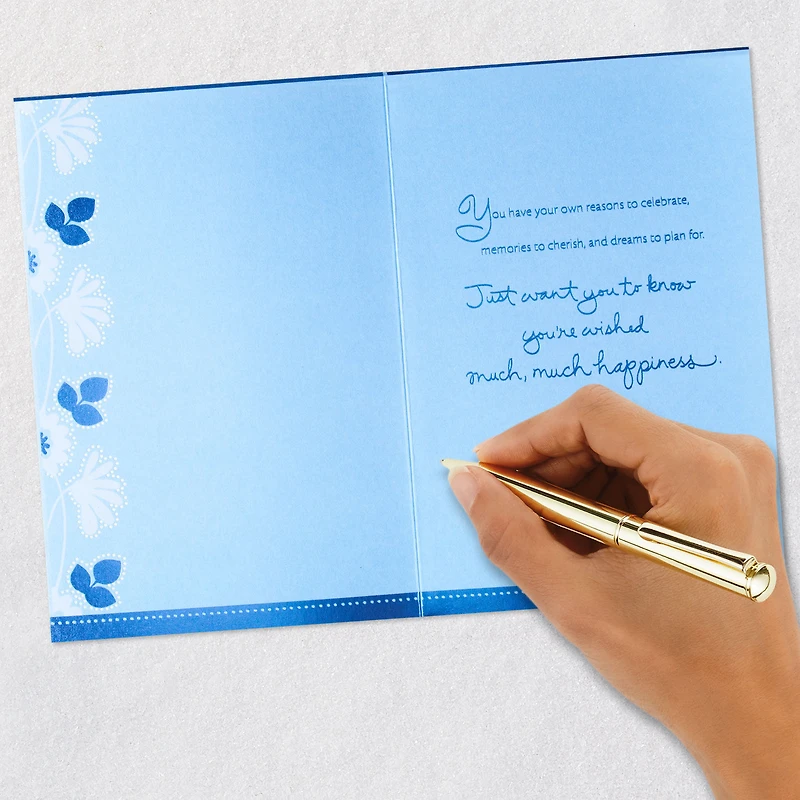 You have your own reasons to celebrate,
memories to cherish, and dreams to plan for.
Just want you to know
you're wished
much, much happiness.